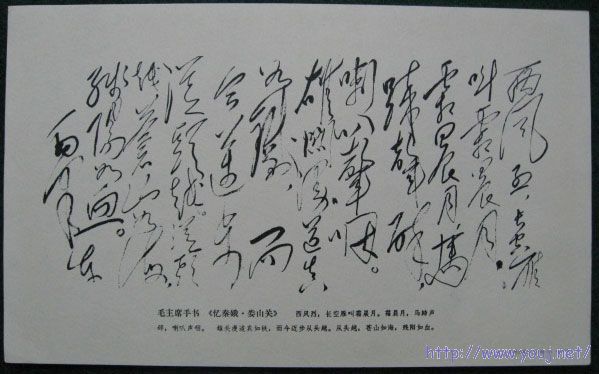 西风烈，长空雁
叫霜晨月。
霜晨月，马
蹄声碎，
喇叭声咽。
雄关漫道真
如铁，而
今迈步
从头越，从头
越苍山如海
残阳如血。
毛主席手书 《忆秦娥·娄山关》 西风烈，长空雁叫霜晨月。霜晨月，马蹄声
碎，喇叭声咽。 雄关漫道真如铁，而今迈步从头越。从头越，苍山如海，残阳如血。
http://www.youj.net/